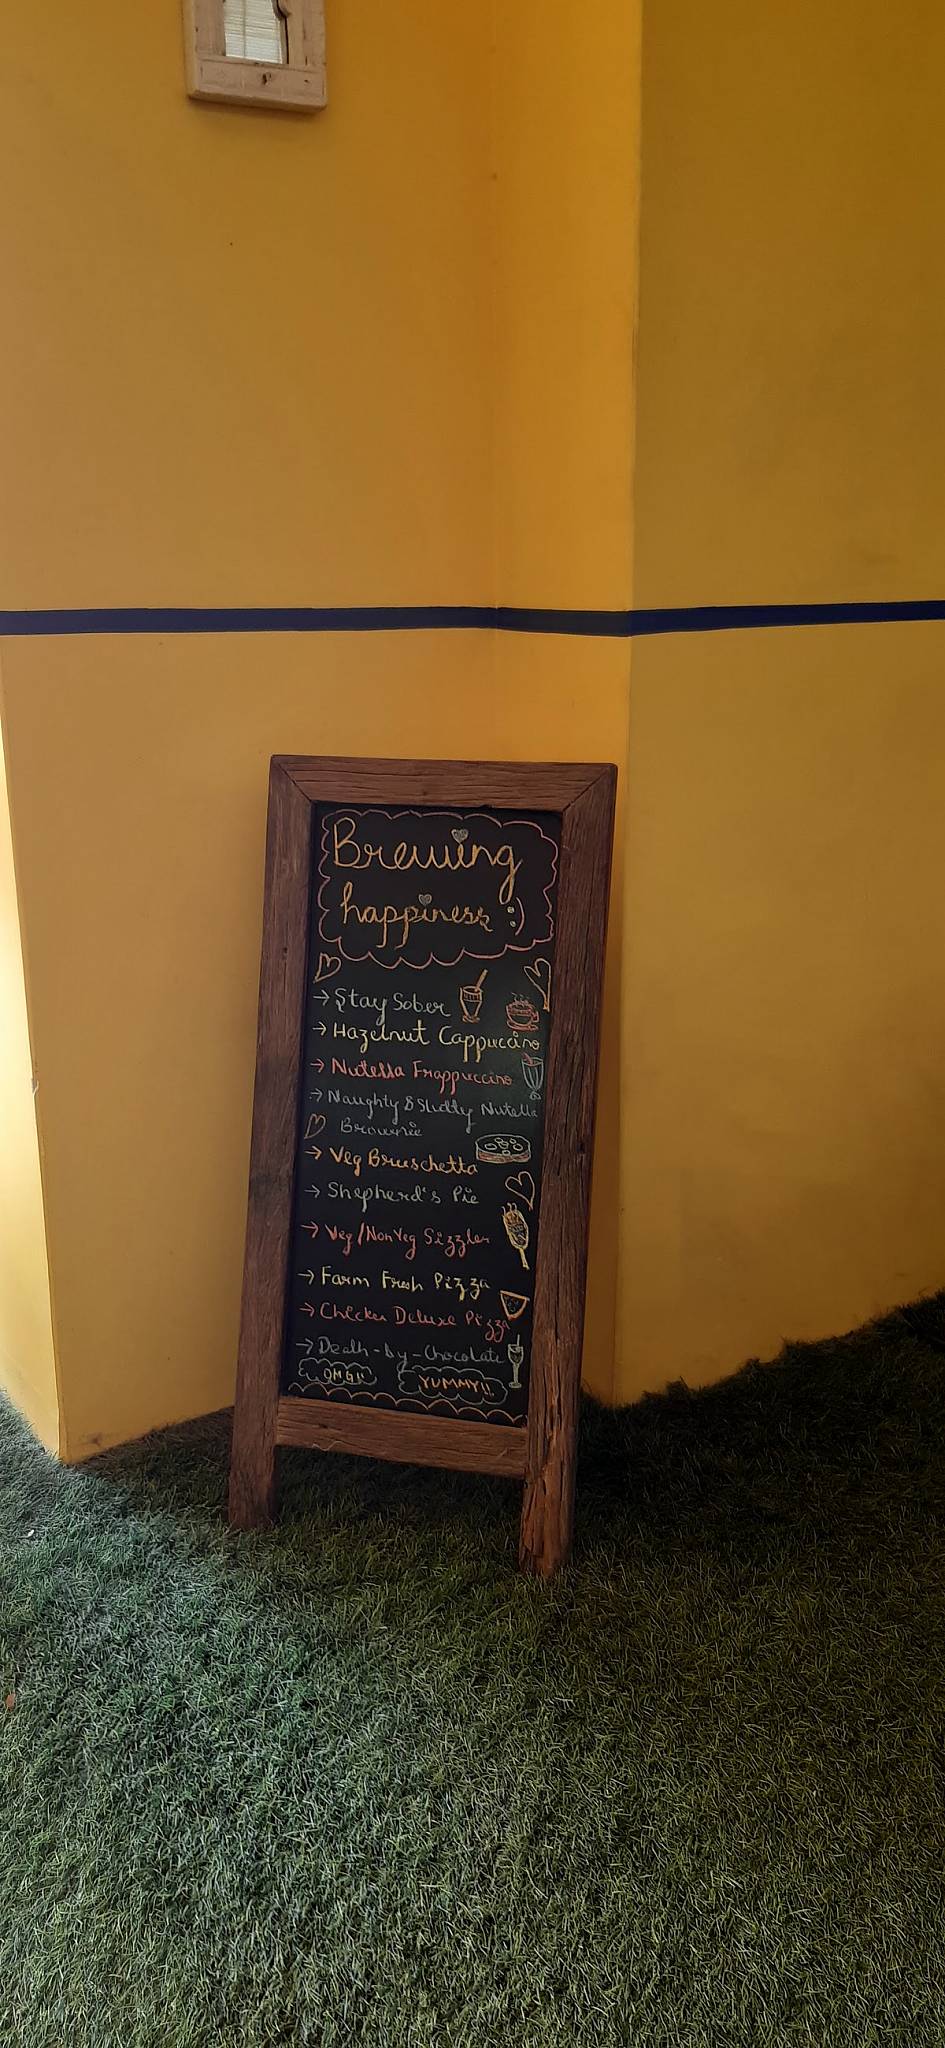 Brewing
happiness :)
→ Stay Sober
→ Hazelnut Cappuccino
→ Nutella Frappuccino
→ Naughty & Slutty Nutella
Brownie
→ Veg Bruschetta
→ Shepherd's Pie
→ Veg/Non Veg Sizzler
→ Farm Fresh Pizza
→ Chicken Deluxe Pizza
→ Death-by-Chocolate
OMG!! YUMMY!!